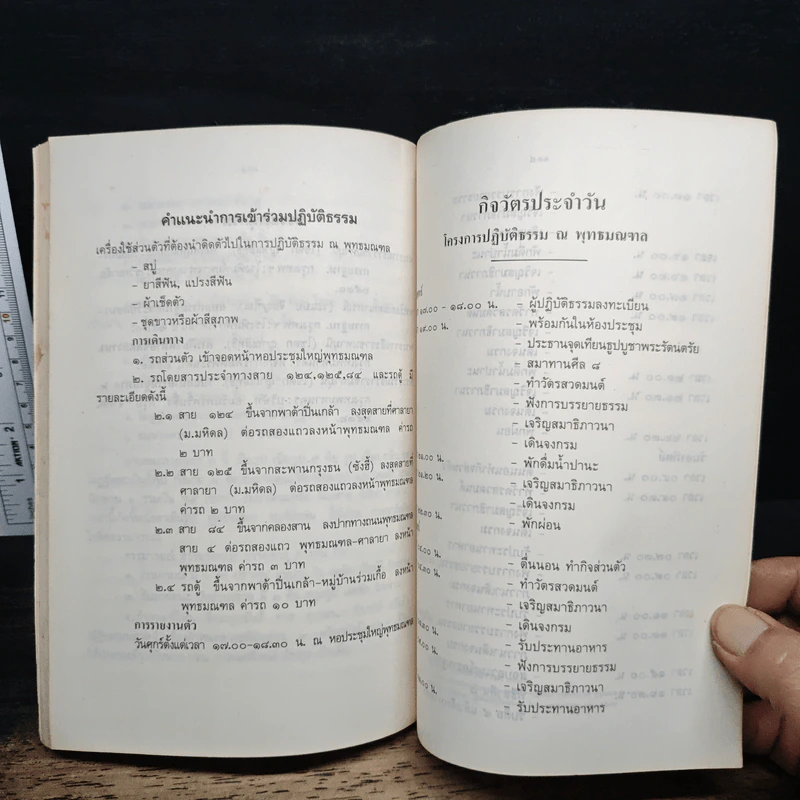 คำแนะนำการเข้าร่วมปฏิบัติธรรม
เครื่องใช้ส่วนตัวที่ต้องนำติดตัวไปในการปฏิบัติธรรม ณ พุทธมณฑล
- สบู่
- ยาสีฟัน, แปรงสีฟัน
- ผ้าเช็ดตัว
- ชุดขาวหรือผ้าสีสุภาพ
การเดินทาง
๑. รถส่วนตัว เข้าจอดหน้าหอประชุมใหญ่พุทธมณฑล
๒. รถโดยสารประจำทางสาย ๑๒๔,๑๒๕,๘๔ และรถตู้ มี
รายละเอียดดังนี้
๒.๑ สาย ๑๒๔ ขึ้นจากพาต้าปิ่นเกล้า ลงสุดสายที่ศาลายา
(ม.มหิดล) ต่อรถสองแถวลงหน้าพุทธมณฑล ค่ารถ
๒ บาท
๒.๒ สาย ๑๒๕ ขึ้นจากสะพานกรุงธน (ซังฮี้) ลงสุดสายที่
ศาลายา (ม.มหิดล) ต่อรถสองแถวลงหน้าพุทธมณฑล
ค่ารถ ๒ บาท
๒.๓ สาย ๘๔ ขึ้นจากคลองสาน ลงปากทางถนนพุทธมณฑล
สาย ๔ ต่อรถสองแถว พุทธมณฑล-ศาลายา ลงหน้า
พุทธมณฑล ค่ารถ ๓ บาท
๒.๔ รถตู้ ขึ้นจากพาต้าปิ่นเกล้า-หมู่บ้านร่วมเกื้อ ลงหน้า
พุทธมณฑล ค่ารถ ๑๐ บาท
การรายงานตัว
วันศุกร์ตั้งแต่เวลา ๑๗.๐๐-๑๘.๓๐ น. ณ หอประชุมใหญ่พุทธมณฑล
กิจวัตรประจำวัน
โครงการปฏิบัติธรรม ณ พุทธมณฑล
๑๗.๐๐ - ๑๘.๐๐ น. - ผู้ปฏิบัติธรรมลงทะเบียน
๑๙.๐๐ น. - พร้อมกันในห้องประชุม
- ประธานจุดเทียนธูปบูชาพระรัตนตรัย
- สมาทานศีล ๘
- ทำวัตรสวดมนต์
- ฟังการบรรยายธรรม
- เจริญสมาธิภาวนา
- เดินจงกรม
.๐๐ น. - พักดื่มน้ำปานะ
.๒๐ น. - เจริญสมาธิภาวนา
- เดินจงกรม
.๓๐ น. - พักผ่อน
.๐๐ น. - ตื่นนอน ทำกิจส่วนตัว
.๓๐ น. - ทำวัตรสวดมนต์
- เจริญสมาธิภาวนา
- เดินจงกรม
.๓๐ น. - รับประทานอาหาร
.๐๐ น. - ฟังการบรรยายธรรม
- เจริญสมาธิภาวนา
.๐๐ น. - รับประทานอาหาร